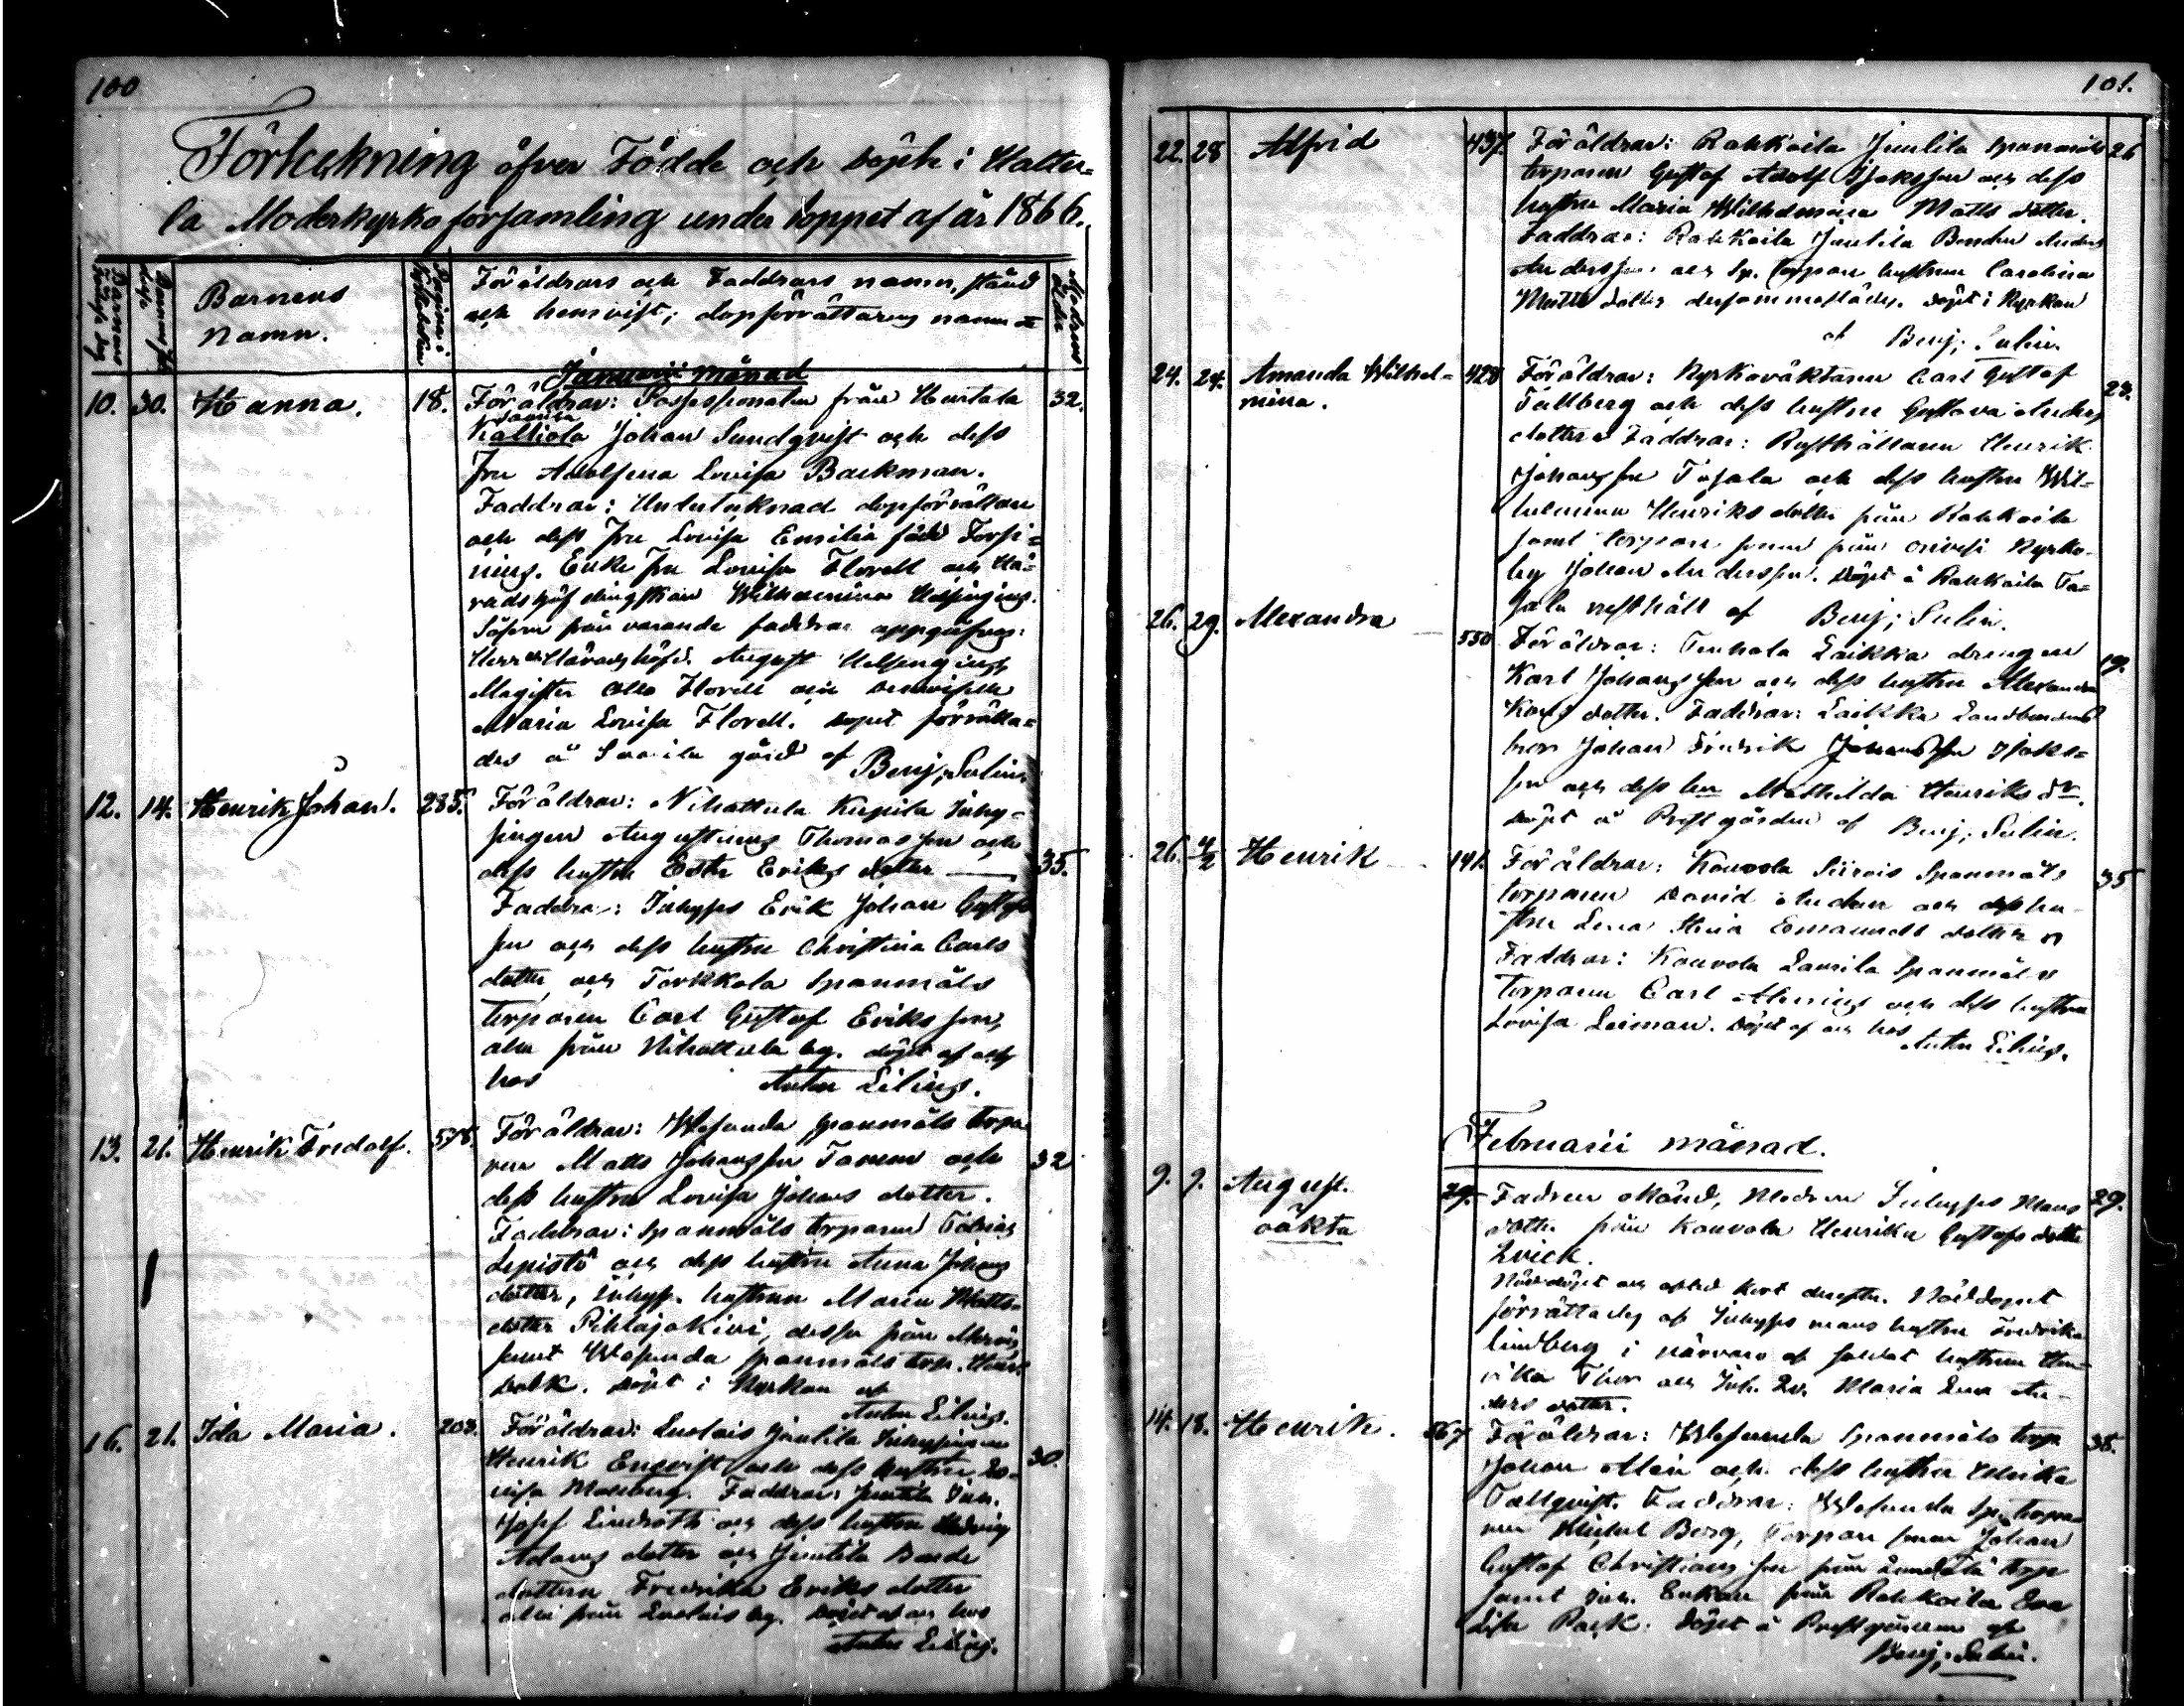 100
Förteckning öfver Födde och döpte i Hattu-
la Moderkyrko församling under loppet af år 1866.
Barnens namn.
Pagina i kyrkoboken
Föräldrars och Faddrars namn, stånd
och hemvist; dopförrättarens namn
Modrens ålder
Januarii månad
10. 30. Hanna. 18. Föräldrar: Possessionaten från Hurtala 32.
Kalliola Johan Sundqvist och dess
Fru Adolfina Lovisa Backman.
Faddrar: Undertecknad dopförrättare
och dess Fru Lovisa Emilia född Forsi-
ning. Enke Fru Lovisa Florell och Hä-
radshöfdingskan Wilhelmina Helsingius.
Såsom från varande faddrar uppgåfvos:
Herr Häradshöfd. August Helsingius,
Magister Otto Florell och
Maria Lovisa Florell. Dopet förrätta-
des å gård af Benj; Sulin
12. 14. Henrik Johan. 285. Föräldrar: Nihattula Kupila Inhy-
singen Augustinus Thomasson och
dess hustru Ester Eriks dotter — 35.
Faddrar: Inhyses Erik Johan Gustafs
son och dess hustru Christina Carls
dotter och Torkkola Spanmåls
torparen Carl Gustaf Eriksson,
alla från Nihattula by. döpt af och
hos Anton Lilius.
13. 21. Henrik Fredolf. 578. Föräldrar: Wesunda spanmåls torpa
ren Matts Johansson Tomm och 32
dess hustru Lovisa Johans dotter.
Faddrar: Spanmåls torparen Tobias
Lepistö och dess hustru Anna Johans
dotter, Inhys. hustrun Maria Matts-
dotter Pihlajakivi, dessa från
samt Wesunda spanmåls torp.
Döpt i Kyrkan af
Anton Lilius.
16. 21. Ida Maria. 203. Föräldrar: Luolais Juutila Inhysingen
Henrik Enqvist och dess hustru Lo- 30.
visa Malmberg. Faddrar: Juutila Inh.
Josef Lindroth och dess hustru Hedvig
Adams dotter och Juutila Bonde
dottern Fredrika Eriks dotter
alla från Luolais by. Döpt af och hos
Anton Lilius.
101.
22. 28 Alfrid 437. Föräldrar: Rahkoila Juutila spanmåls 26
torparen Gustaf Adolf Isaksson och dess
hustru Maria Wilhelmina Matts dotter.
Faddrar: Rahkoila Juutila Bonden Anders
Andersson och Sp. torpare hustrun Carolina
Matts dotter dersammastädes. Döpt i Kyrkan
af Benj; Sulin
24. 24. Amanda Wilhel-
mina. 428 Föräldrar: Kyrkoväktaren Carl Gustaf 23.
Tallberg och dess hustru Gustava Anders
dotter. Faddrar: Rusthållaren Henrik
Johansson Tasala och dess hustru Wil-
helmina Henriks dotter från Rahkoila
samt torpare sonen från Orivesi Kyrko-
by Johan Andersson. Döpt å Rahkoila Ta-
sala rusthåll af Benj; Sulin.
26. 29. Alexandra 550 Föräldrar: Tenhola Laikka drängen 19.
Karl Johansson och dess hustru Alexandra
Karls dotter. Faddrar: Laikka Landbonden
Johan Fredrik Isaks-
son och dess hu Mathilda Henriks dr.
Döpt å Prestgården af Benj; Sulin.
26. 4/2 Henrik 141. Föräldrar: Kouvola Siirois Spanmåls 35
torparen David och dess hu-
stru Lena Stina Emanuels dotter
Faddrar: Kouvola Laurila Spanmåls
torparen Carl Alenius och dess hustru
Lovisa Leiman. Döpt af och hos
Anton Lilius.
Februarii månad.
9. 9. August.
oäkta 29. Fadren okänd, Modren Inhyses Mans 29.
dotter från Kouvola Henrika Gustafs dotter
Qvick.
Nöddöpt och afled kort derefter. Nöddopet
förrättades af Inhyses mans hustru Fredrika
Lindberg i närvaro af soldat hustrun Hen-
rika Thor och Inh. Qv. Maria Lena An-
ders dotter.
14. 18. Henrik. 567 Föräldrar: Wesunda Spanmåls torp. 38.
Johan Alén och dess hustru Ulrika
Tallqvist. Faddrar: Wesunda Sp. torpa-
ren Michel Berg, Torpare sonen Johan
Gustaf Christiansson från torp
samt Inh. Enkan från Rahkoila Eva
Lisa Rask. Döpt å Prestgården af
Benj; Sulin.